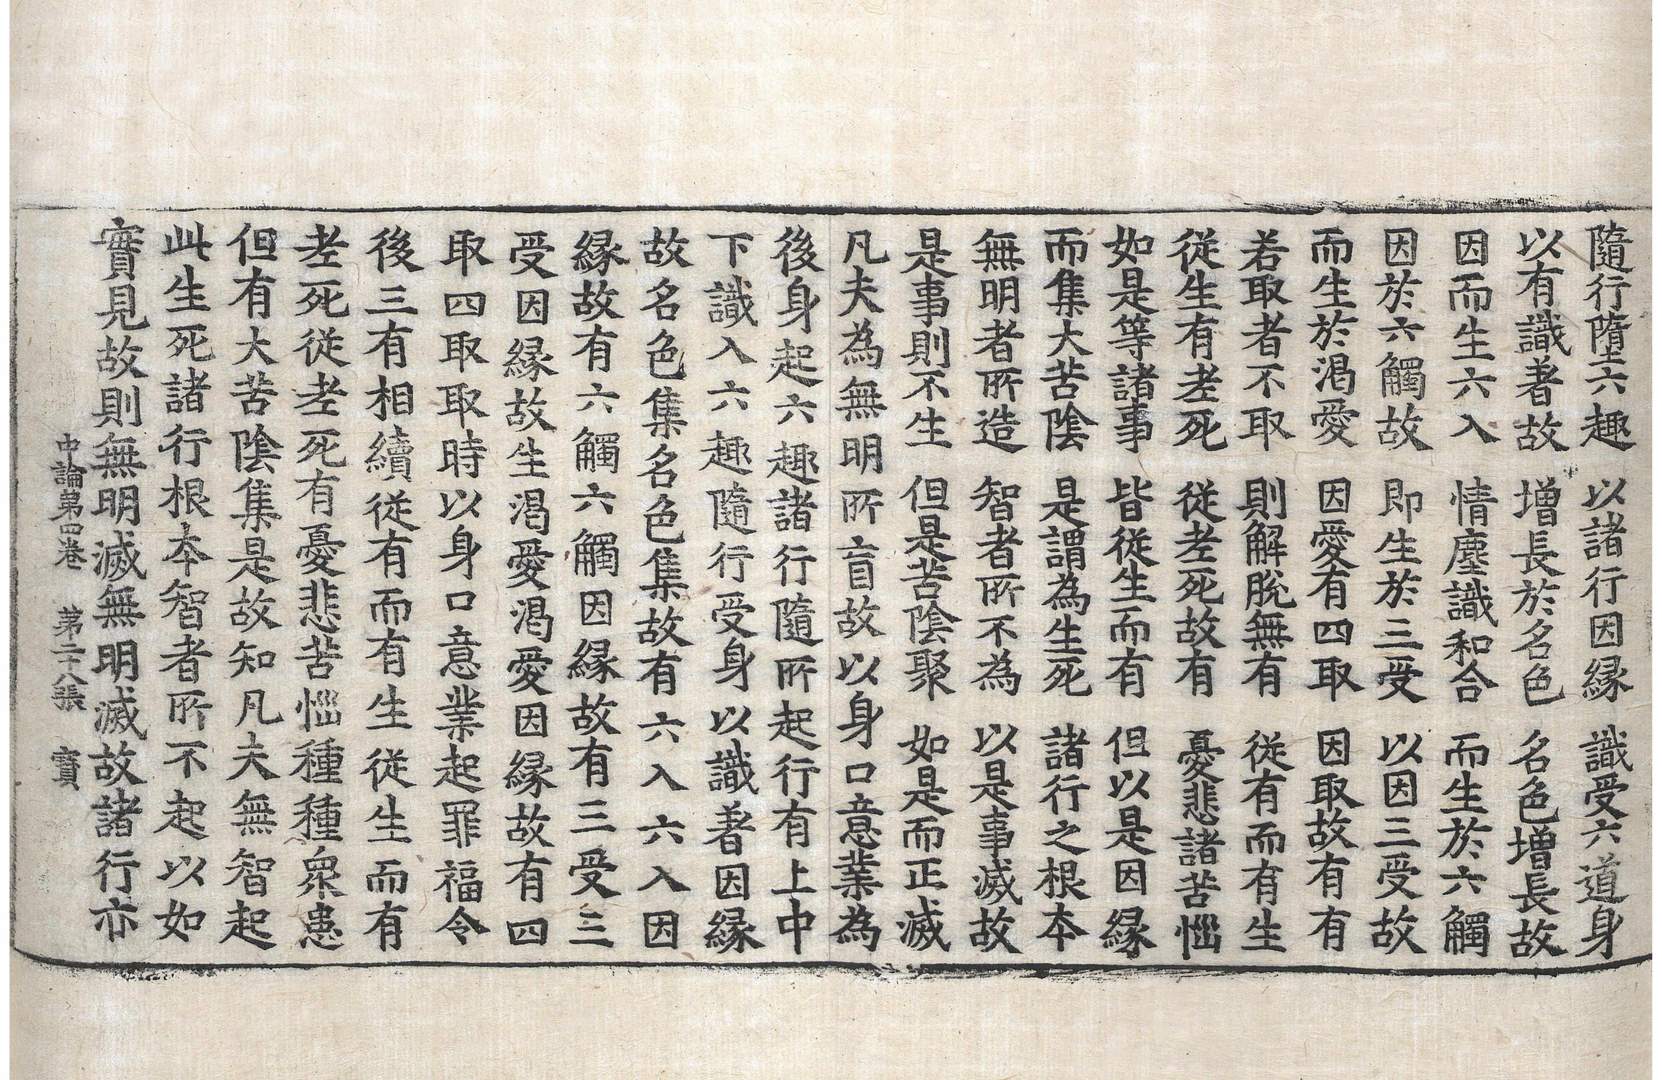 隨行墮六趣　以諸行因緣　識受六道身
以有識著故　增長於名色　名色增長故
因而生六入　情塵識和合　而生於六觸
因於六觸故　即生於三受　以因三受故
而生於渴愛　因愛有四取　因取故有有
若取者不取　則解脫無有　從有而有生
從生有老死　從老死故有　憂悲諸苦惱
如是等諸事　皆從生而有　但以是因緣
而集大苦陰　是謂為生死　諸行之根本
無明者所造　智者所不為　以是事滅故
是事則不生　但是苦陰聚　如是而正滅
凡夫為無明所盲故以身口意業為
後身起六趣諸行隨所起行有上中
下識入六趣隨行受身以識著因緣
故名色集名色集故有六入六入因
緣故有六觸六觸因緣故有三受三
受因緣故生渴愛渴愛因緣故有四
取四取取時以身口意業起罪福令
後三有相續從有而有生從生而有
老死從老死有憂悲苦惱種種眾患
但有大苦陰集是故知凡夫無智起
此生死諸行根本智者所不起以如
實見故則無明滅無明滅故諸行亦
中論第四卷　第二十八張　寶